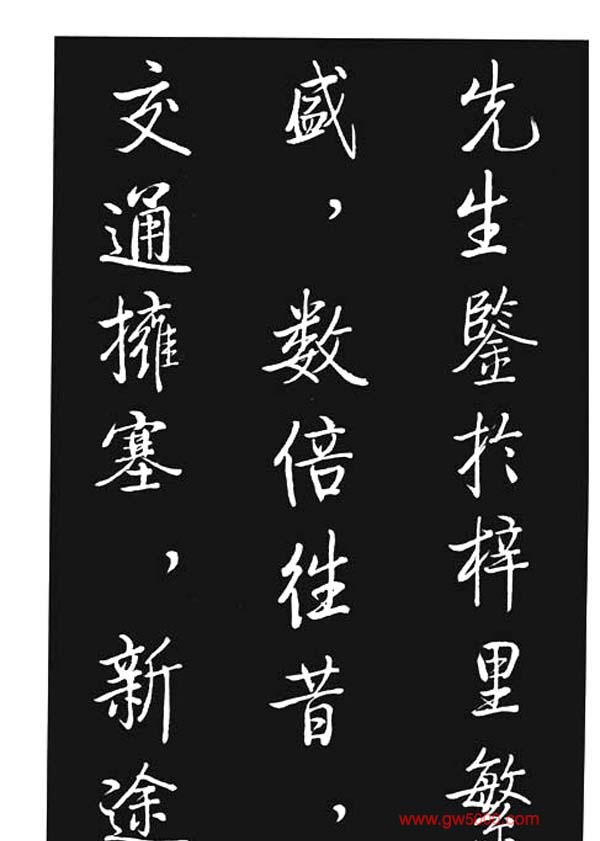 先生鑒於梓里繁
盛，数倍往昔，
交通擁塞，新途
www.gw5000.com